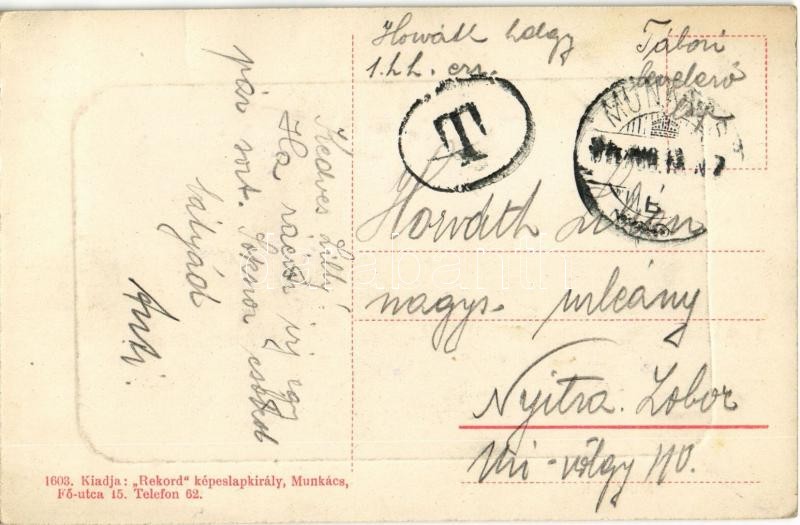 Horváth hdgy
1. h.h. ezr.
Tábori
levelező
T
MUNKÁCS
Kedves Lilly!
Ha ráérsz írj egy
pár sort. Sokszor csókol
bátyád
Anti.
Horváth
nagys. urleány
Nyitra. Zobor
Uri-völgy 110.
1603. Kiadja: „Rekord" képeslapkirály, Munkács,
Fő-utca 15. Telefon 62.